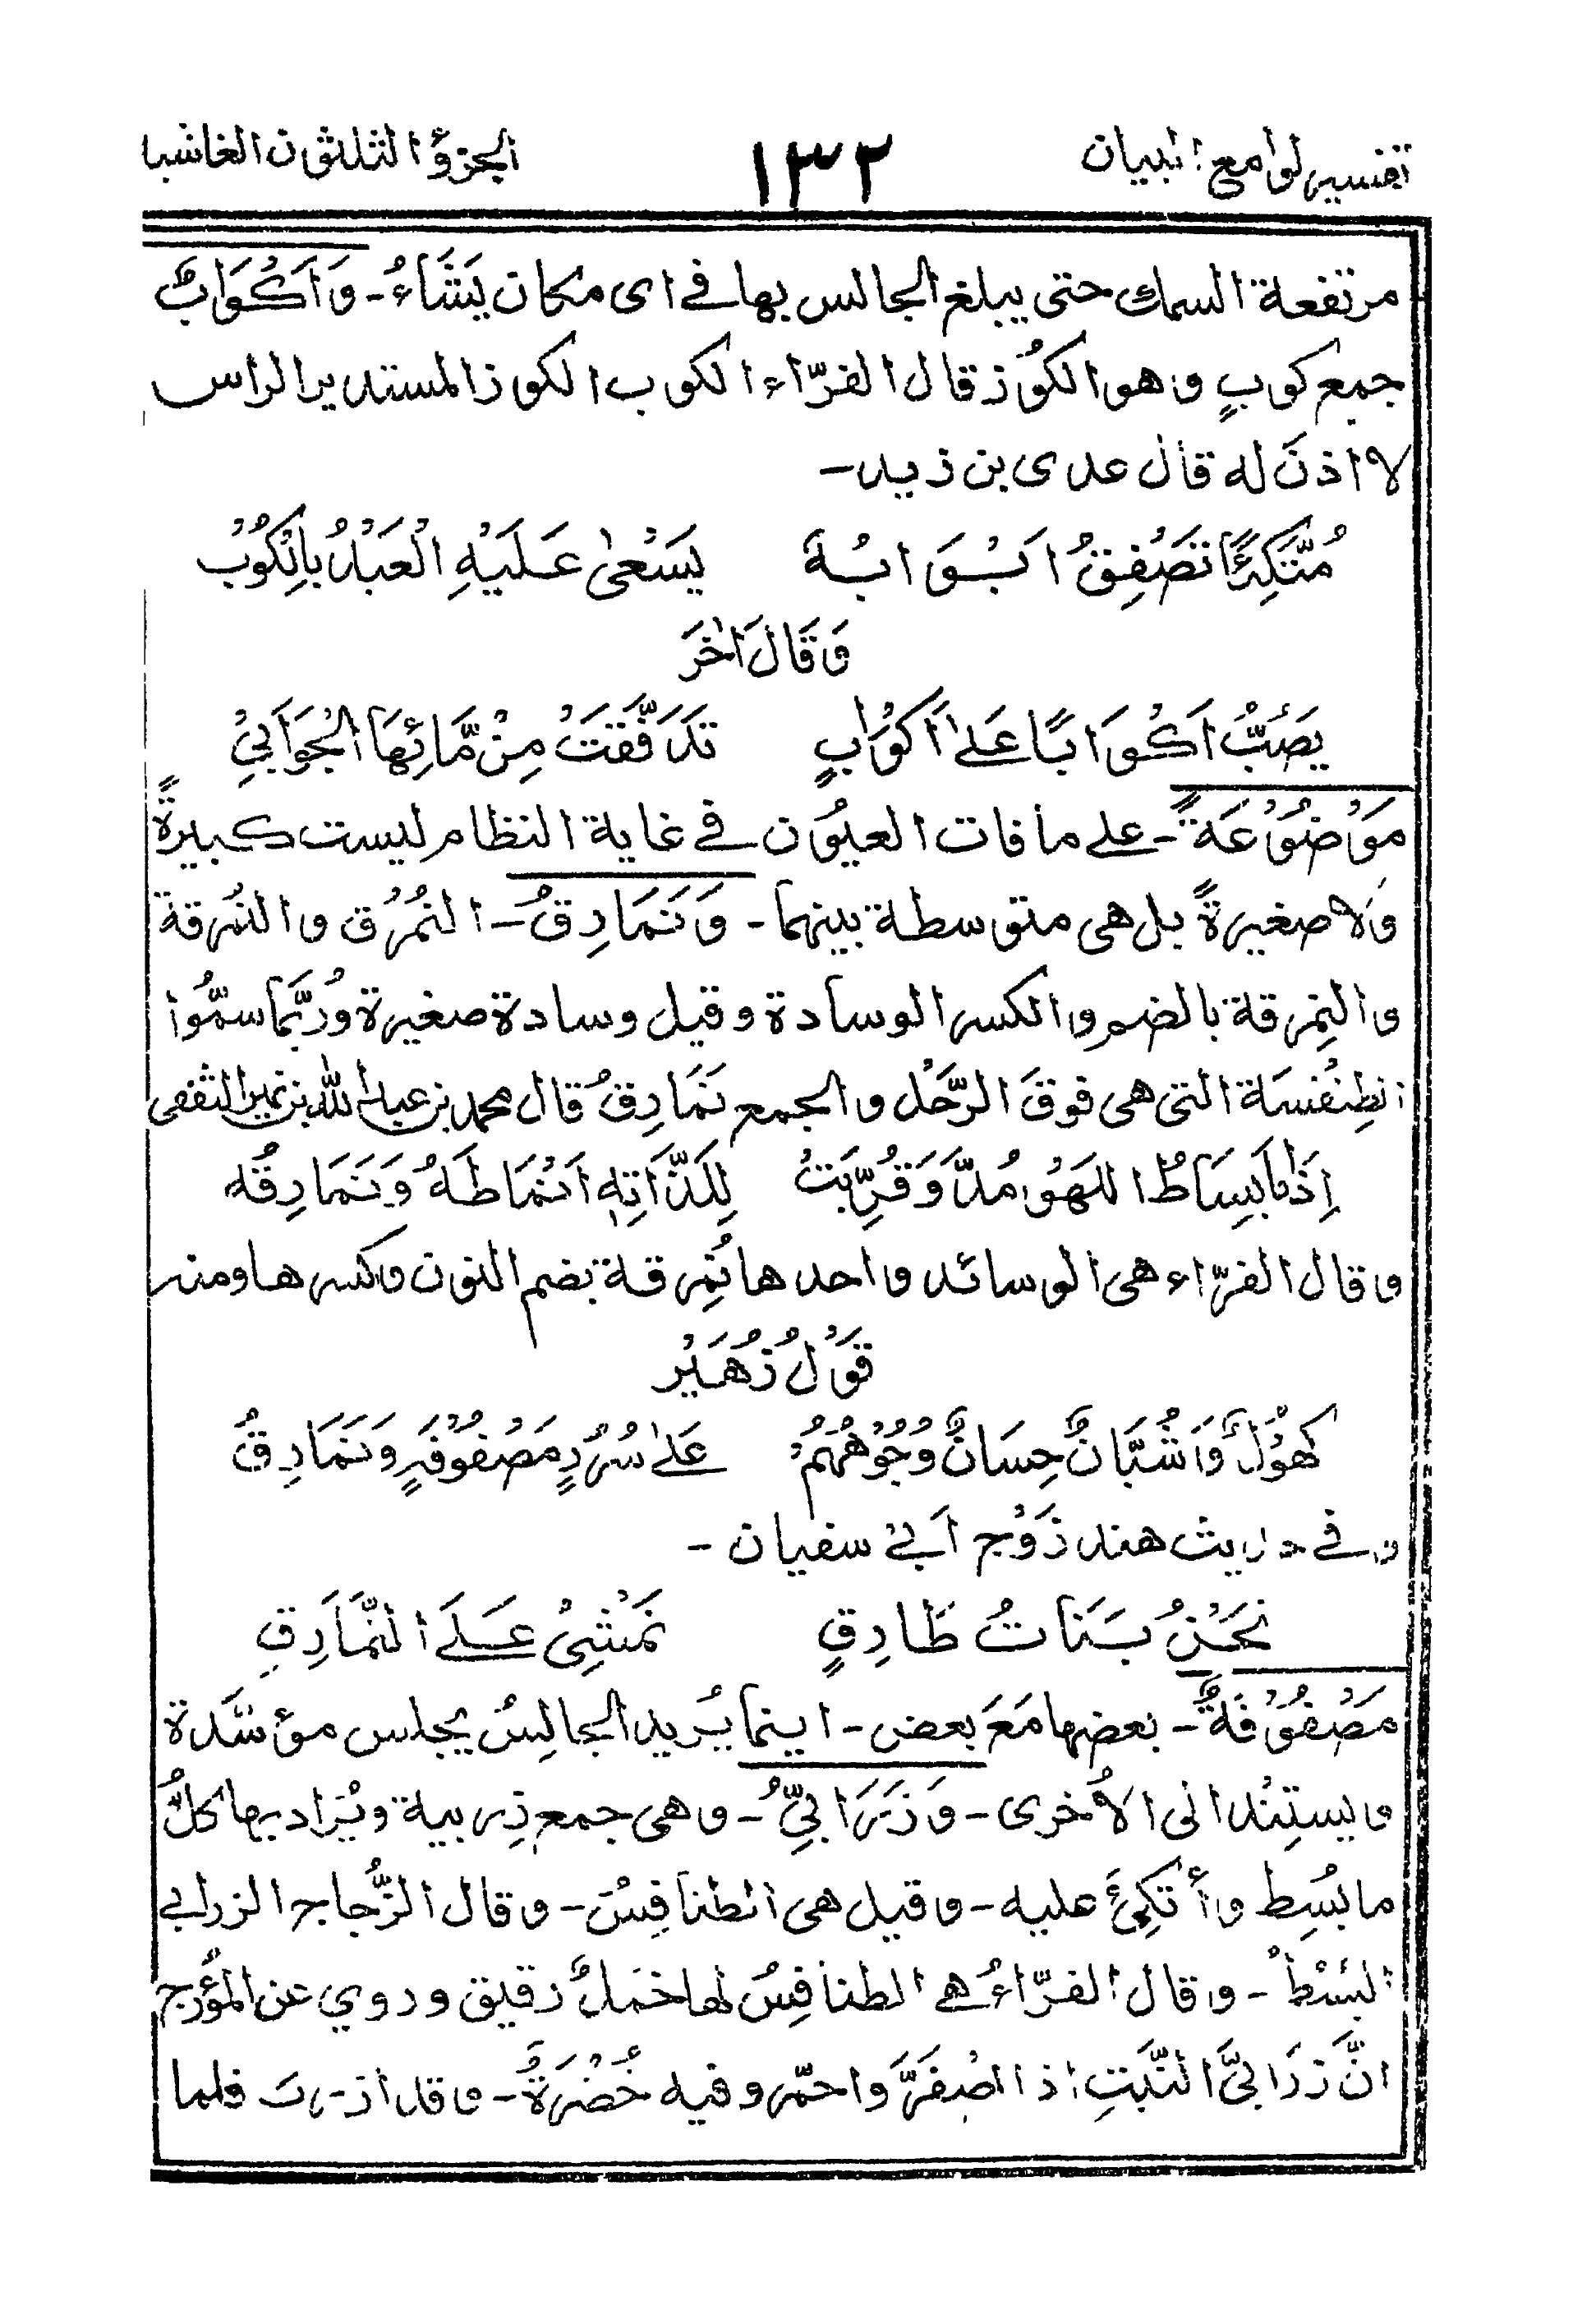 تفسير لوامع البيان ١٣٢ الجزؤ الثلثون الغاشيا
مرتفعة السمك حتى يبلغ الجالس بها في اى مكان يَشَاءُ - وَاَكْوَابٌ
جمع كوبٍ وهو الكُوْز قال الفرّاء الكوب الكوز المستدير الراس
لا اذنَ له قال عدى بن زيد -
مُتَّكِئًا تَصْفِقُ اَبْوَابُهُ يَسْعىٰ عَلَيْهِ الْعَبْدُ بِالْكُوْبْ
وَقَالَ اٰخَرَ
يَصُبُّ اَكْوَابًا عَلىٰ اَكْوَابٍ تَدَفَّقَتْ مِنْ مَّائِهَا الْجَوَابِيْ
مَوْضُوْعَةٌ - على مافات العيون في غاية النظام ليست كبيرةً
ولا صغيرةً بل هى متوسطة بينهما - وَنَمَارِقُ - النُمْرُق والنُمرقة
والنِمرقة بالضم والكسر الوسادة وقيل وسادة صغيرة ورُبَّما سمُّوا
الطِنْفُسَة التى هى فوقَ الرَّحْل والجمع نَمَارِقُ قال محمد بن عبد الله بن نمير الثقفى
اِذَا مَا بِسَاطُ اللَهْوِ مُدَّ وَقُرِّبَتْ لِلَذَّاتِهٖ اَنْمَاطَهُ وَنَمَارِقُه
وقال الفرّاء هى الوسائد واحدها نُمِرقة بضم النون وكسرها ومنه
قَوْلُ زُهَيْر
كُهُوْلٌ وَاَشُبَّانٌ حِسَانٌ وُجُوْهُهُمُ عَلىٰ سُرُرٍ مَصْفُوْفَةٍ وَنَمَارِقُ
وفي حديث هند زَوْج اَبِيْ سفيان -
نَحْنُ بَنَاتُ طَارِقٍ نَمْشِيْ عَلَى النَّمَارِقِ
مَصْفُوْفَةٌ - بعضها مَعَ بعض - اينما يُريد الجالِسُ يجلس مؤسَّدة
ويستِنْد الى الاُخرى - وَزَرَابِيُّ - وهى جمع زِربية ويُرَاد بها كلُّ
ما بُسِط وأُتكِئَ عليه - وقيل هى الطنافِسُ - وقال الزُّجاج الزرابي
البُسْطُ - وقال الفرّاءُ هي الطنافِسُ لها خَمَلٌ رقيق وروي عن المُؤرج
انَّ زرَابىَّ النَّبَتِ اذا اصْفَرَّ واحمّر وفيه خُضْرَةٌ - وقد ازربّ فلما